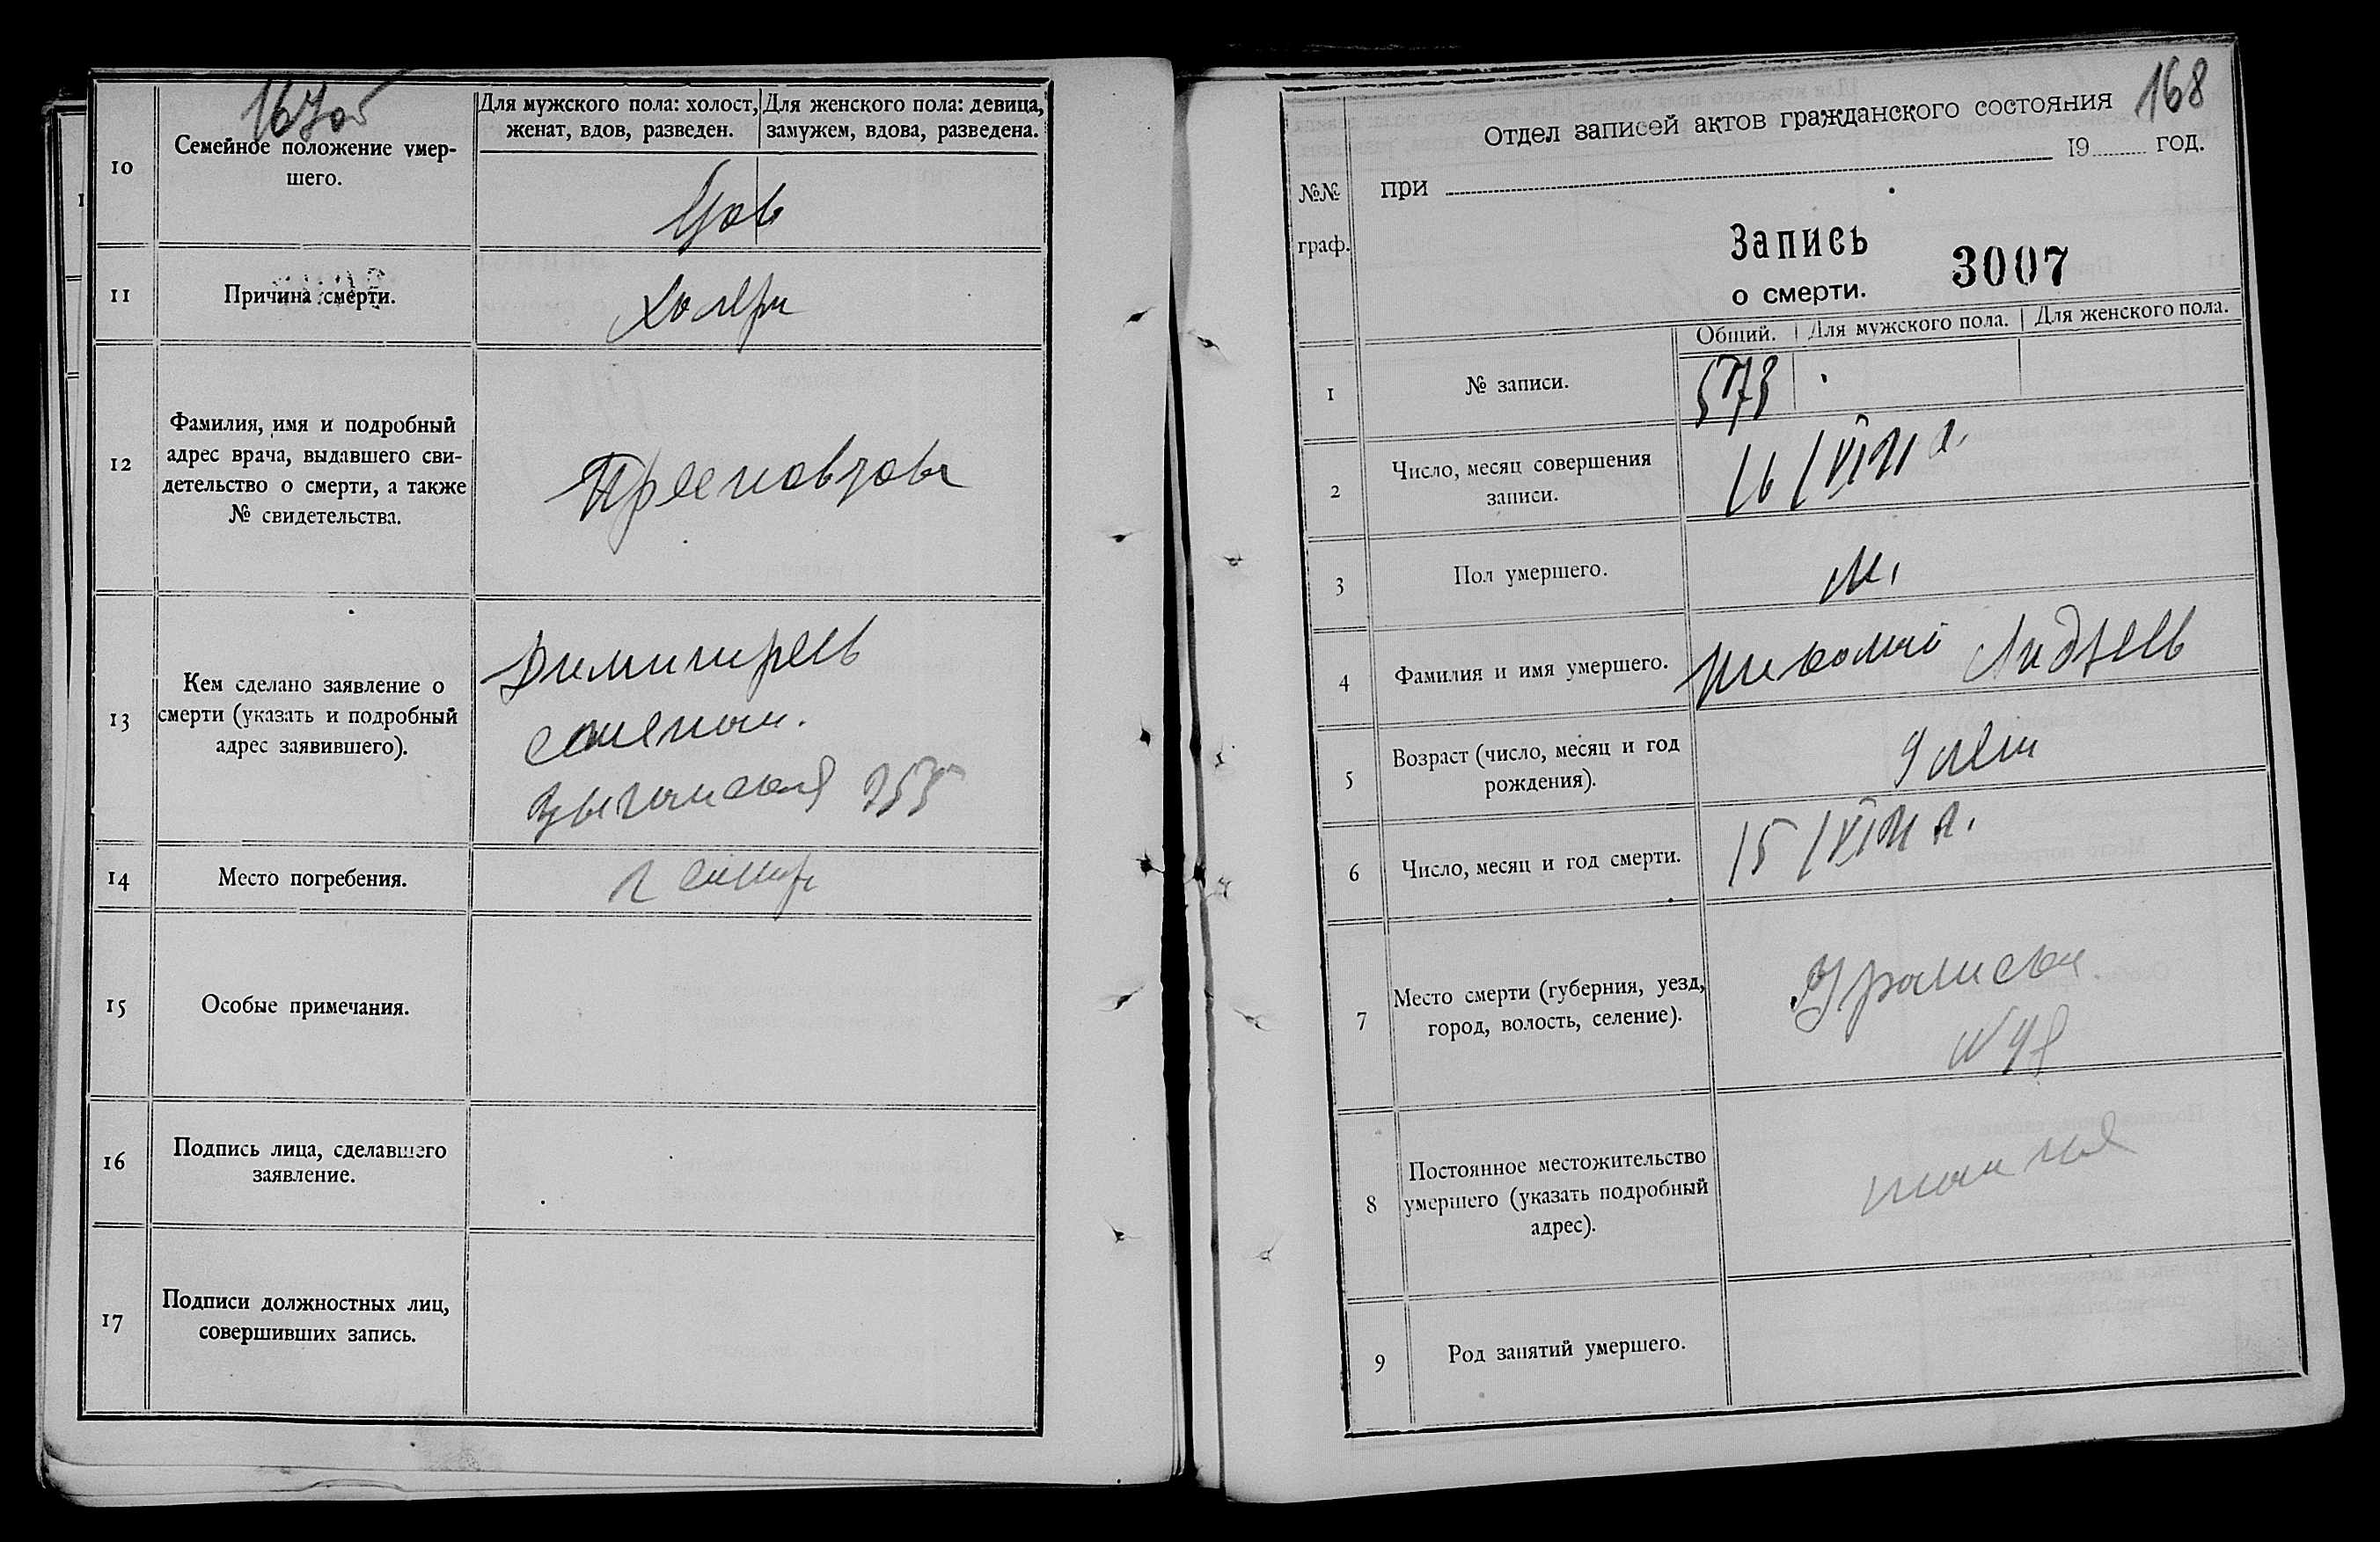 167об
10
Семейное положение умер-
шего.
Для мужского пола: холост,
женат, вдов, разведен.
Для женского пола: девица,
замужем, вдова, разведена.
11
Причина смерти.
Холера
12
Фамилия, имя и подробный
адрес врача, выдавшего сви-
детельство о смерти, а также
№ свидетельства.
13
Кем сделано заявление о
смерти (указать и подробный
адрес заявившего).
Цыганская
14
Место погребения.
15
Особые примечания.
16
Подпись лица, сделавшего
заявление.
17
Подписи должностных лиц,
совершивших запись.
168
№№
граф.
Отдел записей актов гражданского состояния
при 19 год.
Запись
о смерти.
3007
Общий. Для мужского пола. Для женского пола.
1
№ записи.
573
2
Число, месяц совершения
записи.
16/VI 21 г.
3
Пол умершего.
м.
4
Фамилия и имя умершего.
Николай
5
Возраст (число, месяц и год
рождения).
9 лет
6
Число, месяц и год смерти.
15/VI 21 г.
7
Место смерти (губерния, уезд,
город, волость, селение).
8
Постоянное местожительство
умершего (указать подробный
адрес).
9
Род занятий умершего.